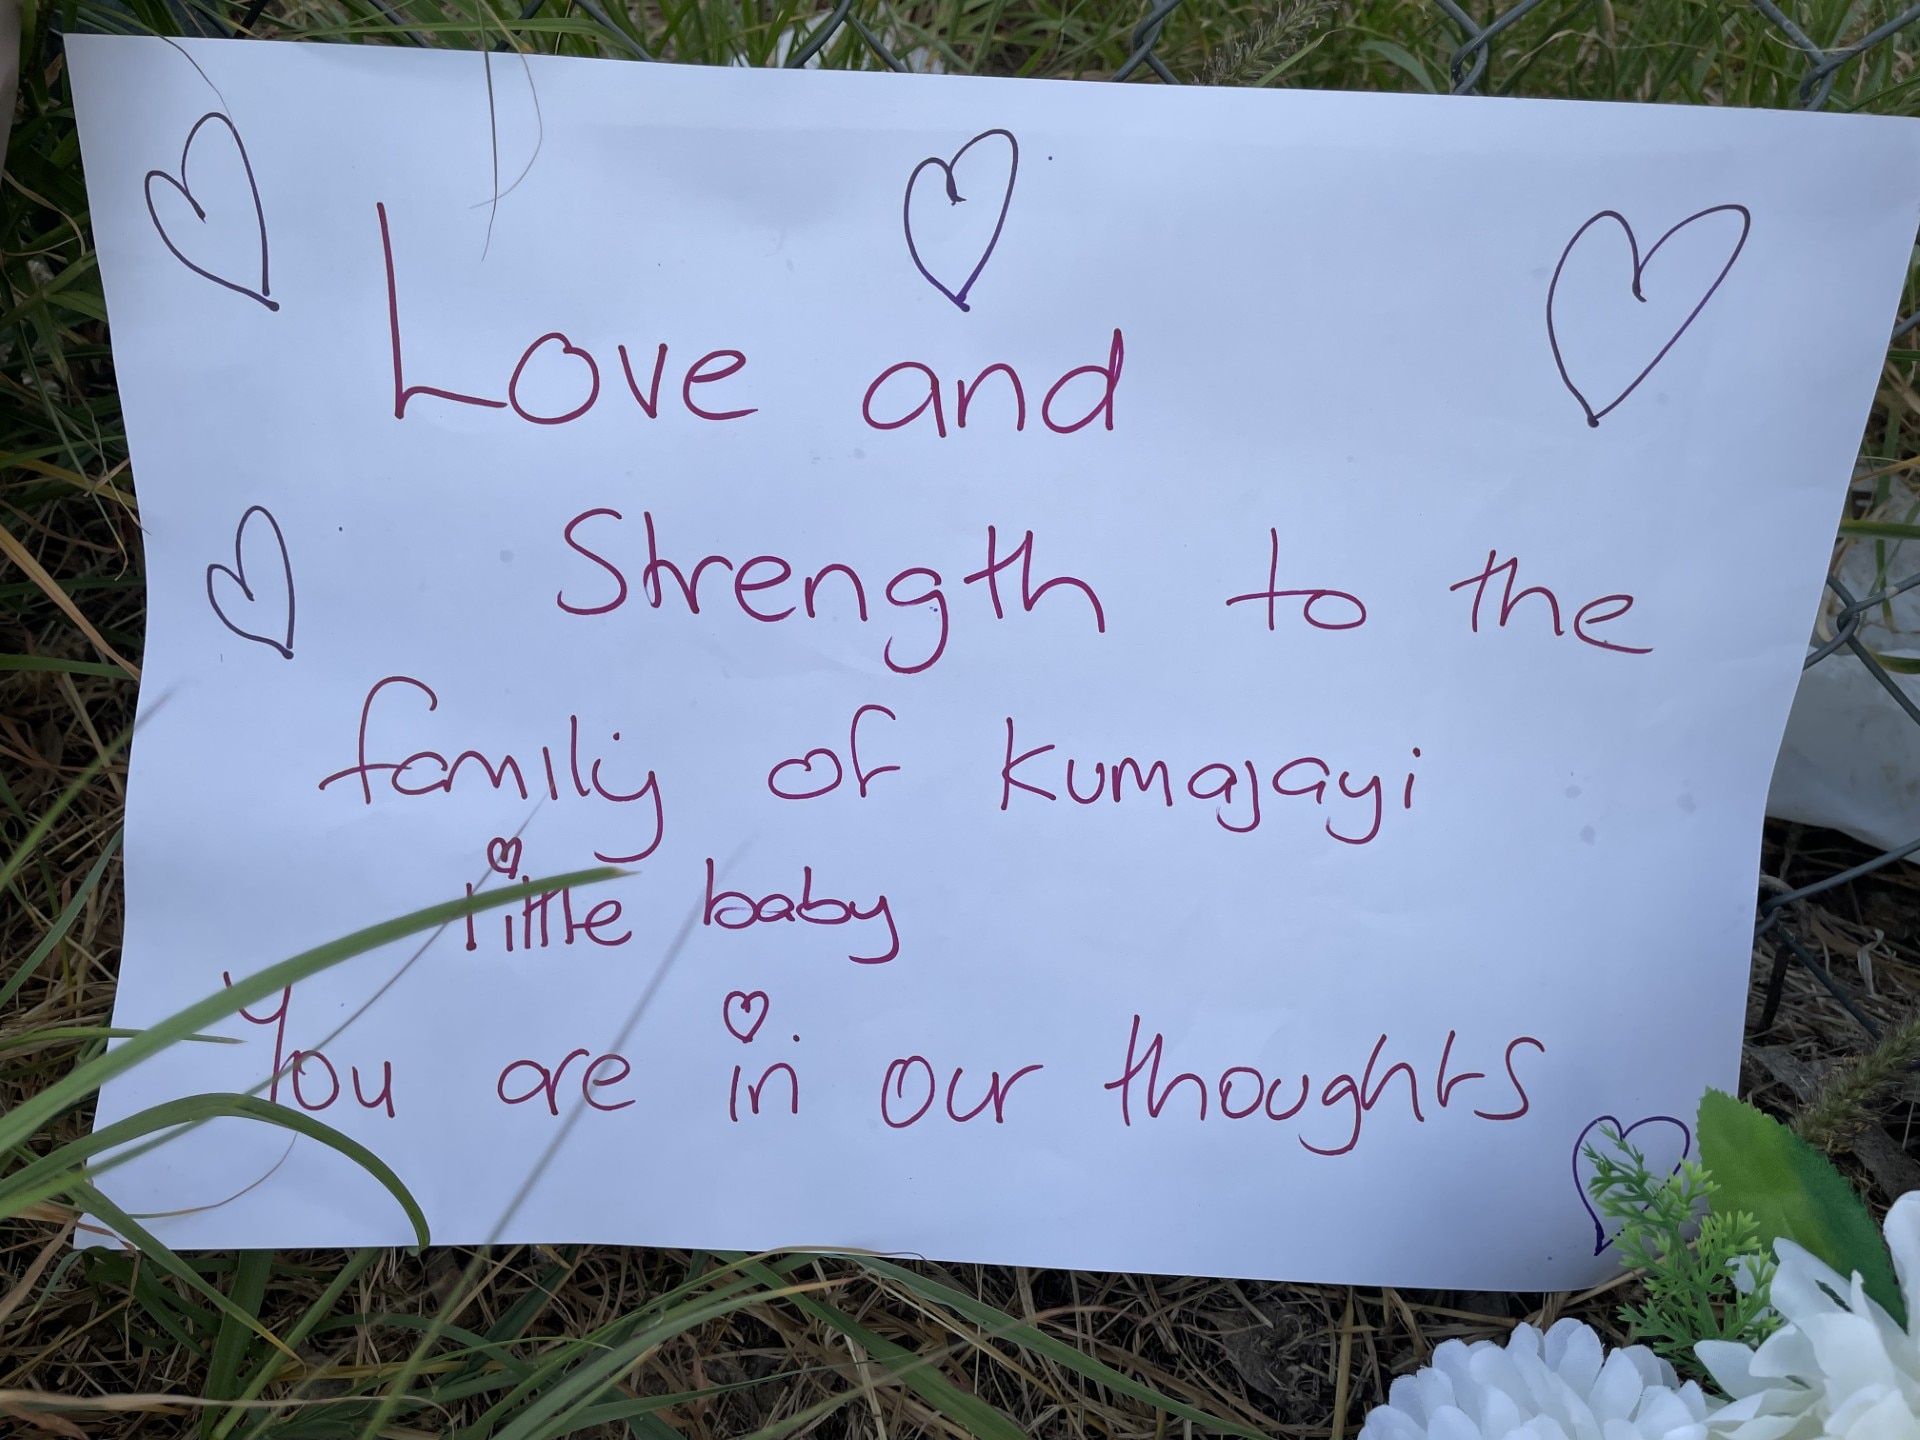 Love and
Strength to the
family of Kumajayi
little baby
You are in our thoughts